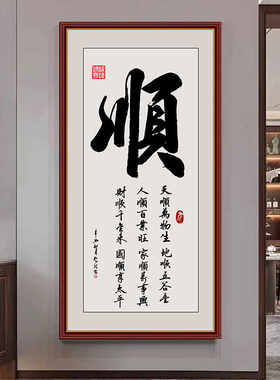 順
天順萬物生 地順五谷豐
人順百業旺 家順萬事興
財順千金来 國順享太平